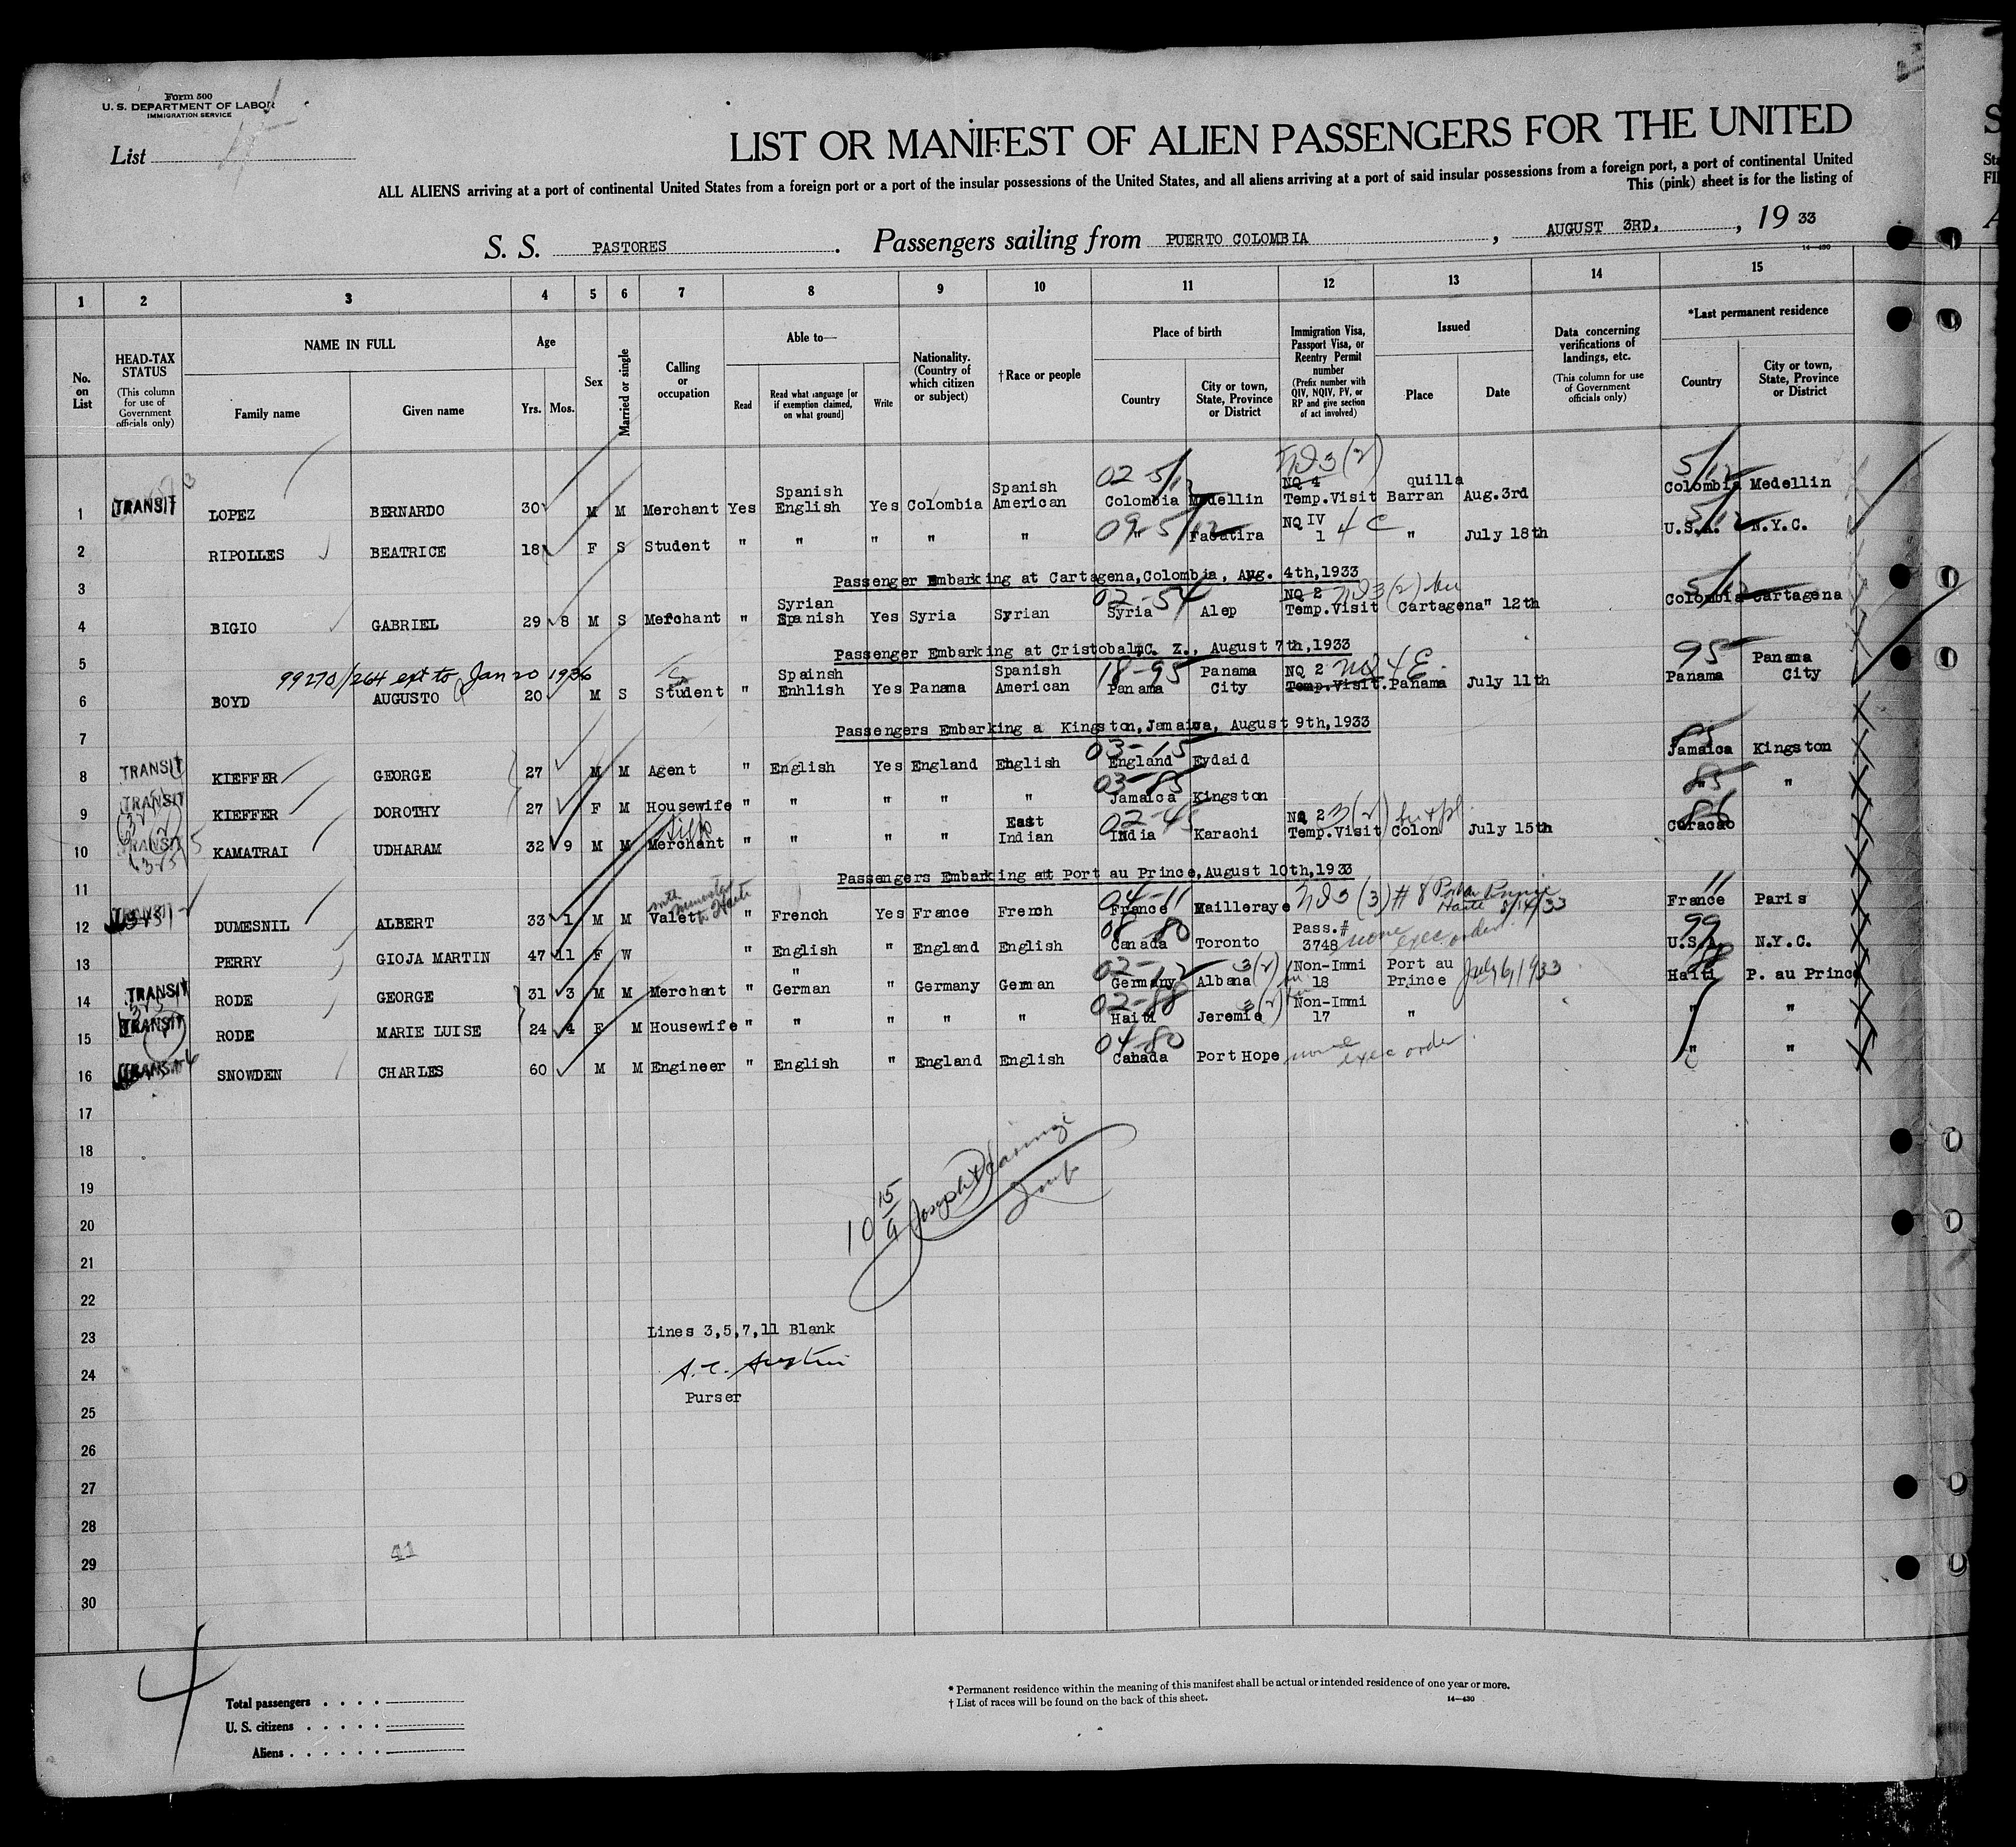 Form 500
U. S. DEPARTMENT OF LABOR
IMMIGRATION SERVICE
List
LIST OR MANIFEST OF ALIEN PASSENGERS FOR THE UNITED
ALL ALIENS arriving at a port of continental United States from a foreign port or a port of the insular possessions of the United States, and all aliens arriving at a port of said insular possessions from a foreign port, a port of continental United
This (pink) sheet is for the listing of
S. S. PASTORES. Passengers sailing from PUERTO COLOMBIA, AUGUST 3RD., 19 33
14—430
1 2 3 4 5 6 7 8 9 10 11 12 13 14 15
No. on List
HEAD-TAX STATUS (This column for use of Government officials only)
NAME IN FULL
Family name Given name
Age
Yrs. Mos.
Sex
Married or single
Calling or occupation
Able to—
Read Read what language [or if exemption claimed, on what ground] Write
Nationality. (Country of which citizen or subject)
†Race or people
Place of birth
Country City or town, State, Province or District
Immigration Visa, Passport Visa, or Reentry Permit number (Prefix number with QIV, NQIV, PV, or RP and give section of act involved)
Issued
Place Date
Data concerning verifications of landings, etc. (This column for use of Government officials only)
*Last permanent residence
Country City or town, State, Province or District
1 TRANSIT LOPEZ BERNARDO 30 M M Merchant Yes Spanish English Yes Colombia Spanish American 02-5/12 Colombia Medellin ND3(2) NQ 4 Temp.Visit Barran quilla Aug.3rd 5/12 Colombia Medellin
2 RIPOLLES BEATRICE 18 F S Student " " " " " 09-5/12 " Facatira NQ IV 1 4 C " July 18th 5/12 U.S.A. N.Y.C.
3 Passenger Embarking at Cartagena,Colombia, Aug. 4th,1933
4 BIGIO GABRIEL 29 8 M S Merchant " Syrian Spanish Yes Syria Syrian 02-54 Syria Alep NQ 2 Temp.Visit 3(2) Cartagena " 12th 5/12 Colombia Cartagena
5 Passenger Embarking at Cristobal, C. Z., August 7th,1933
99270/264 ext to Jan 20 1936
6 BOYD AUGUSTO 20 M S Student " Spainsh Enhlish Yes Panama Spanish American 18-95 Panama Panama City NQ 2 Temp.Visit. NQ 4 E Panama July 11th 95 Panama Panama City
7 Passengers Embarking a Kingston,Jamaica, August 9th,1933
8 TRANSIT KIEFFER GEORGE 27 M M Agent " English Yes England English 03-15 England Eydaid 85 Jamaica Kingston
9 TRANSIT KIEFFER DOROTHY 27 F M Housewife " " " " " 03-85 Jamaica Kingston 85 " "
10 TRANSIT KAMATRAI UDHARAM 32 9 M M Silk Merchant " " " " East Indian 02-45 India Karachi NQ 2 Temp.Visit 3(2) Colon July 15th 86 Curacao
11 Passengers Embarking at Port au Prince,August 10th,1933
12 TRANSIT DUMESNIL ALBERT 33 1 M M Valet with minister to Haite " French Yes France French 04-11 France Mailleraye ND3 (3) # 8 Port au Prince Haite 8/14/33 11 France Paris
13 PERRY GIOJA MARTIN 47 11 F W " English " England English 08 80 Canada Toronto Pass.# 3748 none exec order 99 U.S.A. N.Y.C.
14 TRANSIT RODE GEORGE 31 3 M M Merchant " " German " Germany German 02-12 Germany Albana 3(2) Non-Immi 18 Port au Prince July 6, 1933 88 Haiti P. au Prince
15 TRANSIT RODE MARIE LUISE 24 4 F M Housewife " " " " " 02-88 Haiti Jeremie 3(2) Non-Immi 17 " " "
16 TRANSIT SNOWDEN CHARLES 60 M M Engineer " English " England English 04-80 Canada Port Hope none exec order " "
17
18
19
20
10 15/9 Joseph
21
22
23 Lines 3,5,7,11 Blank
24 A. C. Austin
25 Purser
26
27
28
29 41
30
4
Total passengers . . . .
U. S. citizens . . . . .
Aliens . . . . . .
* Permanent residence within the meaning of this manifest shall be actual or intended residence of one year or more.
† List of races will be found on the back of this sheet.
14—430